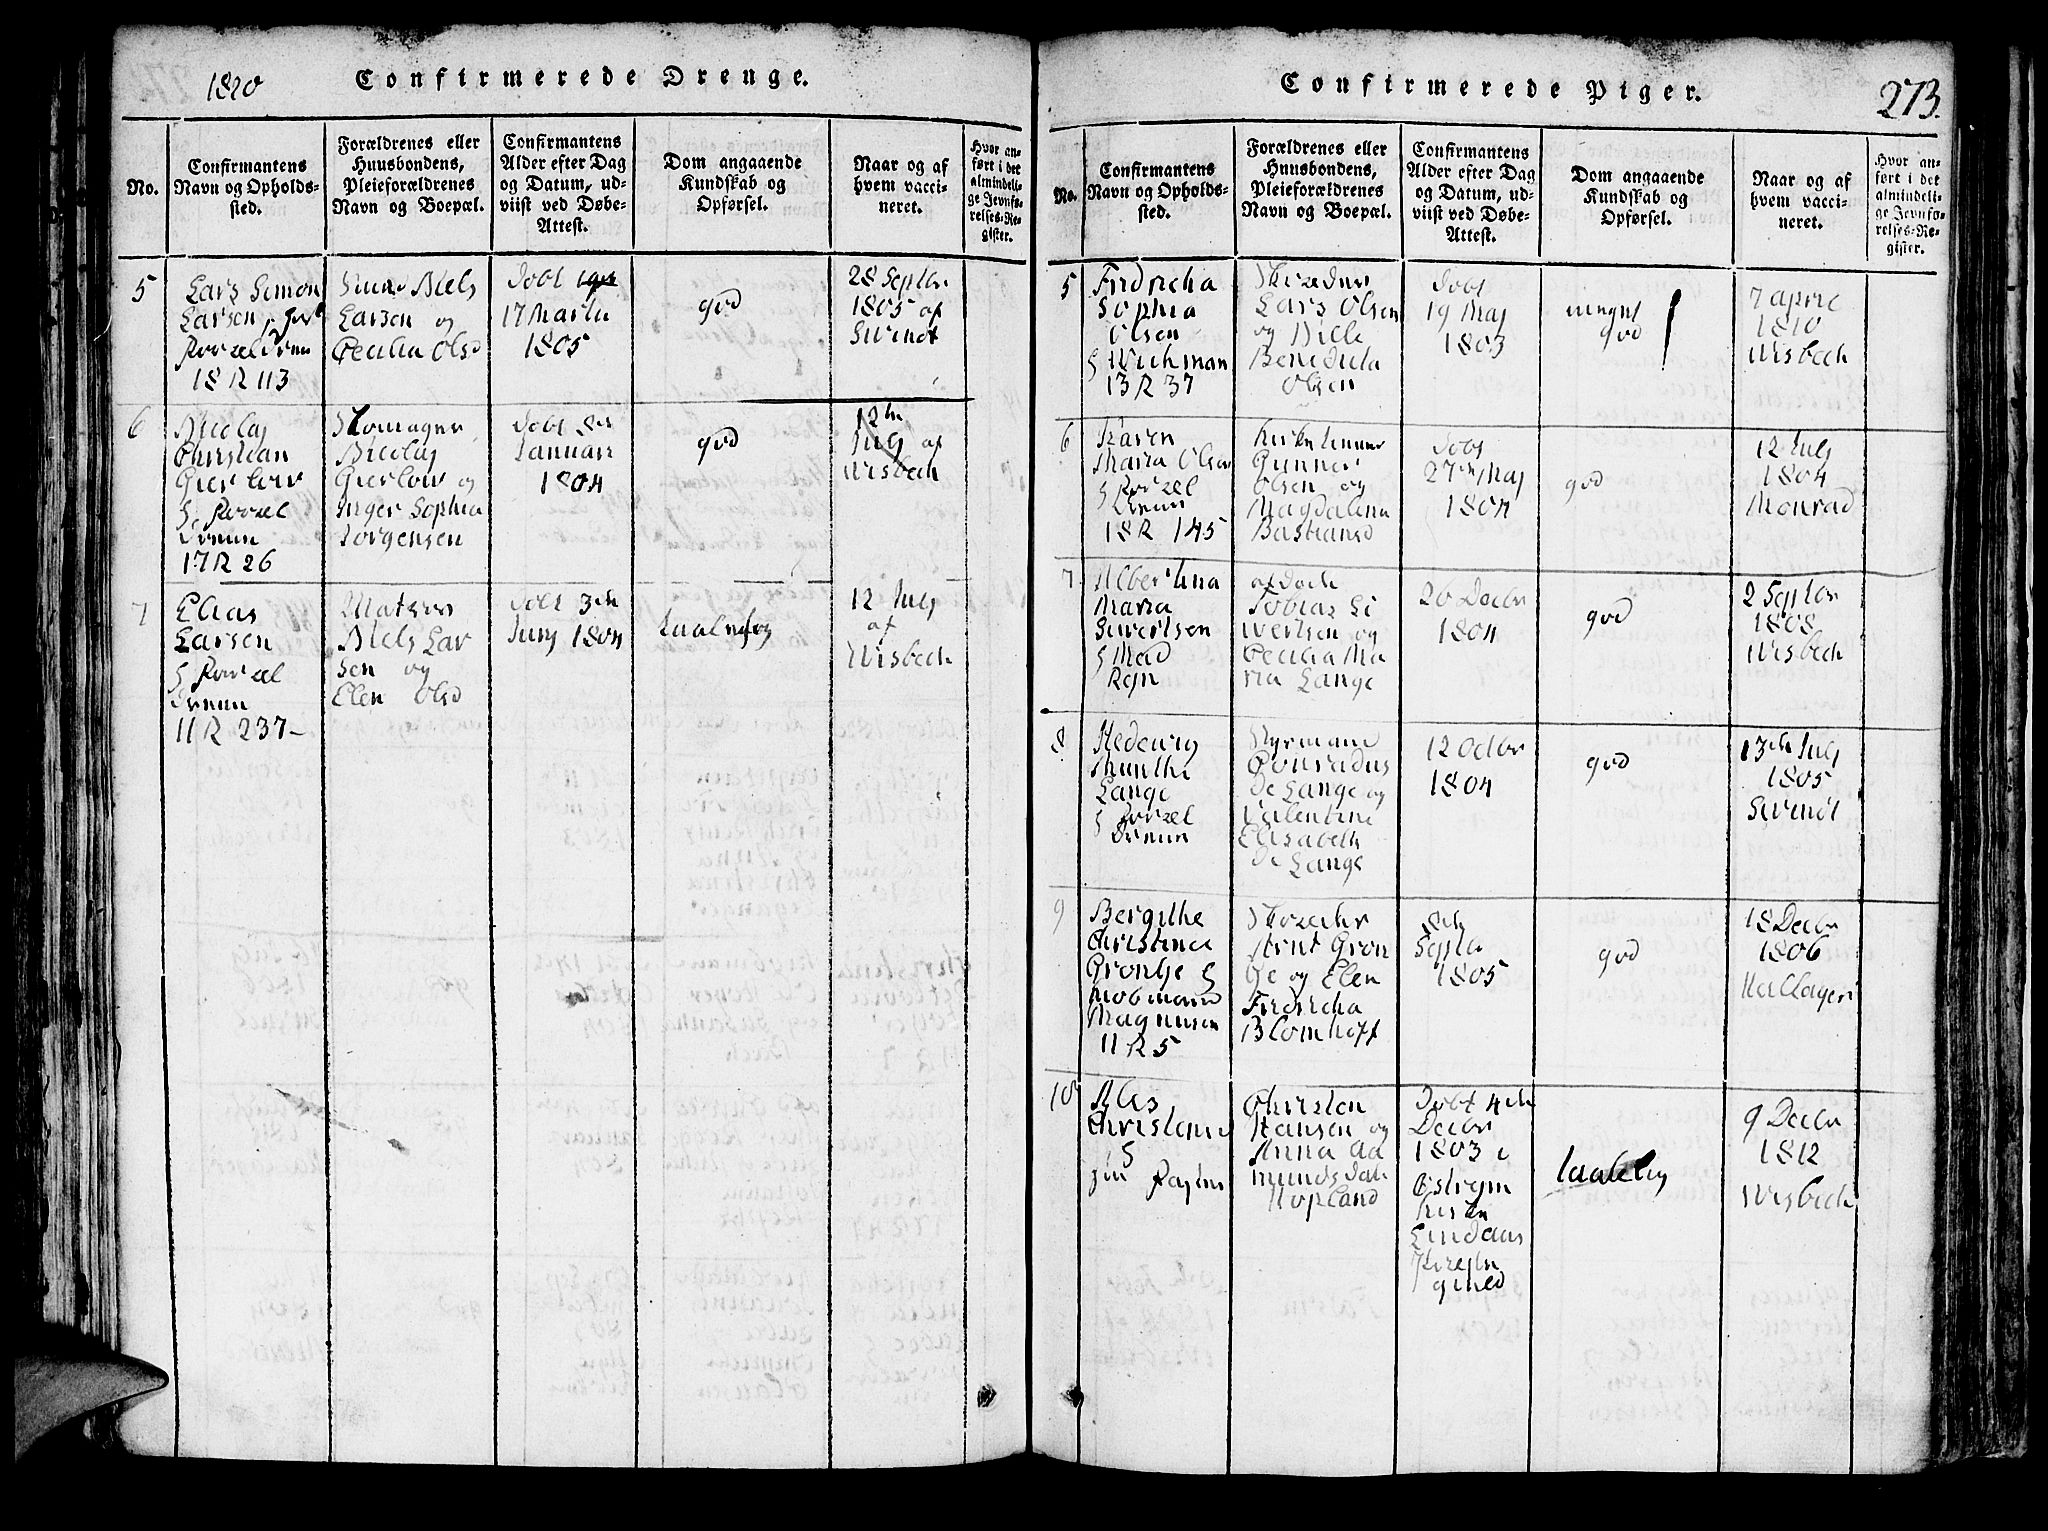 1820
Confirmerede Drenge.
No.
Confirmantens
Navn og Opholds-
sted.
Forældrenes eller
Huusbondens,
Pleieforældrenes
Navn og Boepæl.
Confirmantens
Alder efter Dag
og Datum, ud-
viist ved Døbe-
Attest.
Dom angaaende
Kundskab og
Opførsel.
Naar og af
hvem vacci-
neret.
Hvor an-
ført i det
almindeli-
ge Jevnfø-
relses-Re-
gister.
5
Lars Simon
Larsen
18 R 113
Niels
Larsen og
Cecilia Olsd
Døbt
17 Martii
1805
god
28 Septbr
1805 af
Swendt
6
Nicolay
Christian
Gierløw
17 R 26
Skomager
Nicolay
Gierløw og
Inger Sophia
Jørgensen
Døbt 8de
Januari
1804
god
12te
July af
Wisbech
7
Elias
Larsen
11 R 237-
Matros
Niels Lar
sen og
Elen Olsd
Døbt 3de
Juny 1804
12 July
af
Wisbech
Confirmerede Piger.
273.
No.
Confirmantens
Navn og Opholds-
sted.
Forældrenes eller
Huusbondens,
Pleieforældrenes
Navn og Boepæl.
Confirmantens
Alder efter Dag
og Datum, ud-
viist ved Døbe-
Attest.
Dom angaaende
Kundskab og
Opførsel.
Naar og af
hvem vacci-
neret.
Hvor an-
ført i det
almindeli-
ge Jevnfø-
relses-Re-
gister.
5
Fridricha
Sophia
Olsen
Wichman
13 R 37
Skræder
Lars Olsen
og Sille
Benedicta
Olsen
Døbt
19 Maj
1803
meget
god
7 April
1810
Wisbech
6
Karen
Maria Olsen
18 R 145
Gunner
Olsen og
Magdalena
Bastiansd
Døbt
27de Maj
1804
god
12 July
1804
Monrad
7
Albertina
Maria
Sivertsen
afdøde
Tobias Si
vertsen og
Cecilia Ma
ria Lange
20 Decbr
1804
god
2 Septbr
1808
Wisbech
8
Hedewig
Munthe
Lange
Styrmand
Conradus
De Lange og
Valentine
Elisabeth
De Lange
12 Octbr
1804
god
13de July
1805
Swendt
9
Bergithe
Christine
Magnusen
11 R 5
Skræder
Arnt Grøn
og Elen
Fridricha
Blomhoff
8de
Septbr
1805
god
18 Decbr
1806
Hallager
10
Christen
Hansen og
Anna Aa
munds dat
Hopland
Døbt 4de
Decbr
1803 i
Lindaas
Præste
gield
taalelig
9 Decbr
1812
Wisbech